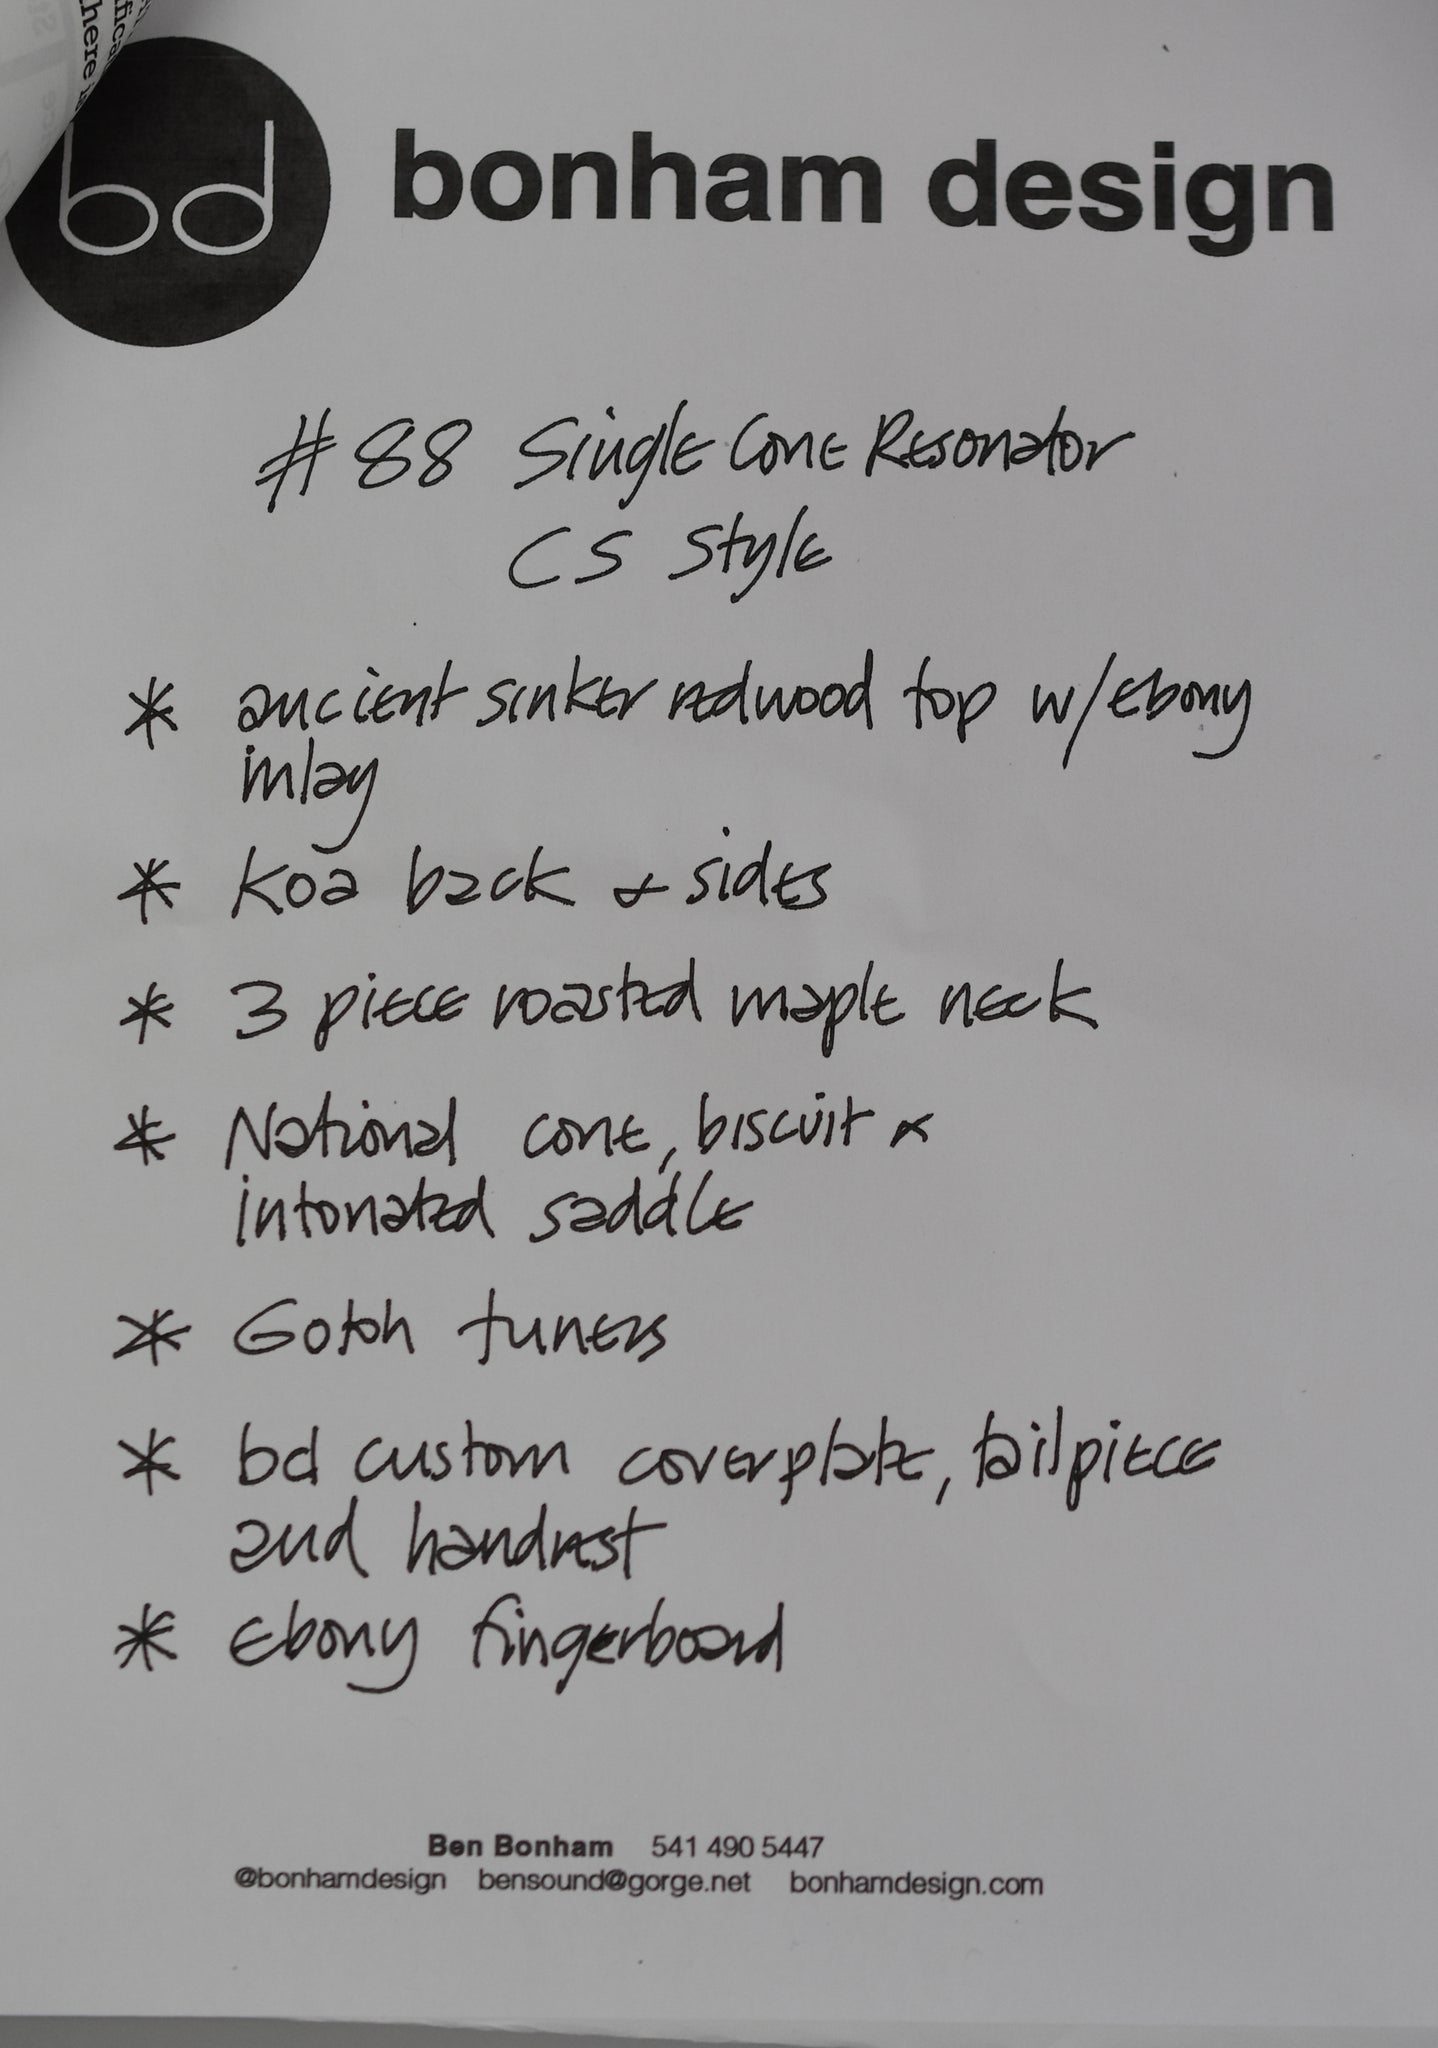 here
bd bonham design
#88 Single Cone Resonator
CS Style
* ancient sinker redwood top w/ebony
inlay
* Koa back & sides
* 3 piece roasted maple neck
* National cone, biscuit &
intonated saddle
* Gotoh tuners
* bd custom coverplate, tailpiece
and handrest
* Ebony fingerboard
Ben Bonham 541 490 5447
@bonhamdesign bensound@gorge.net bonhamdesign.com